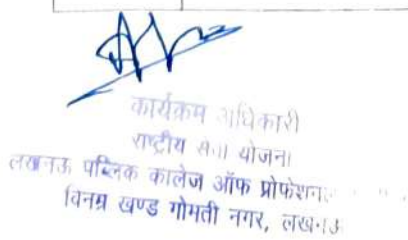 कार्यक्रम अधिकारी
राष्ट्रीय सेवा योजना
लखनऊ पब्लिक कालेज ऑफ प्रोफेशनल
विनम्र खण्ड गोमती नगर, लखनऊ